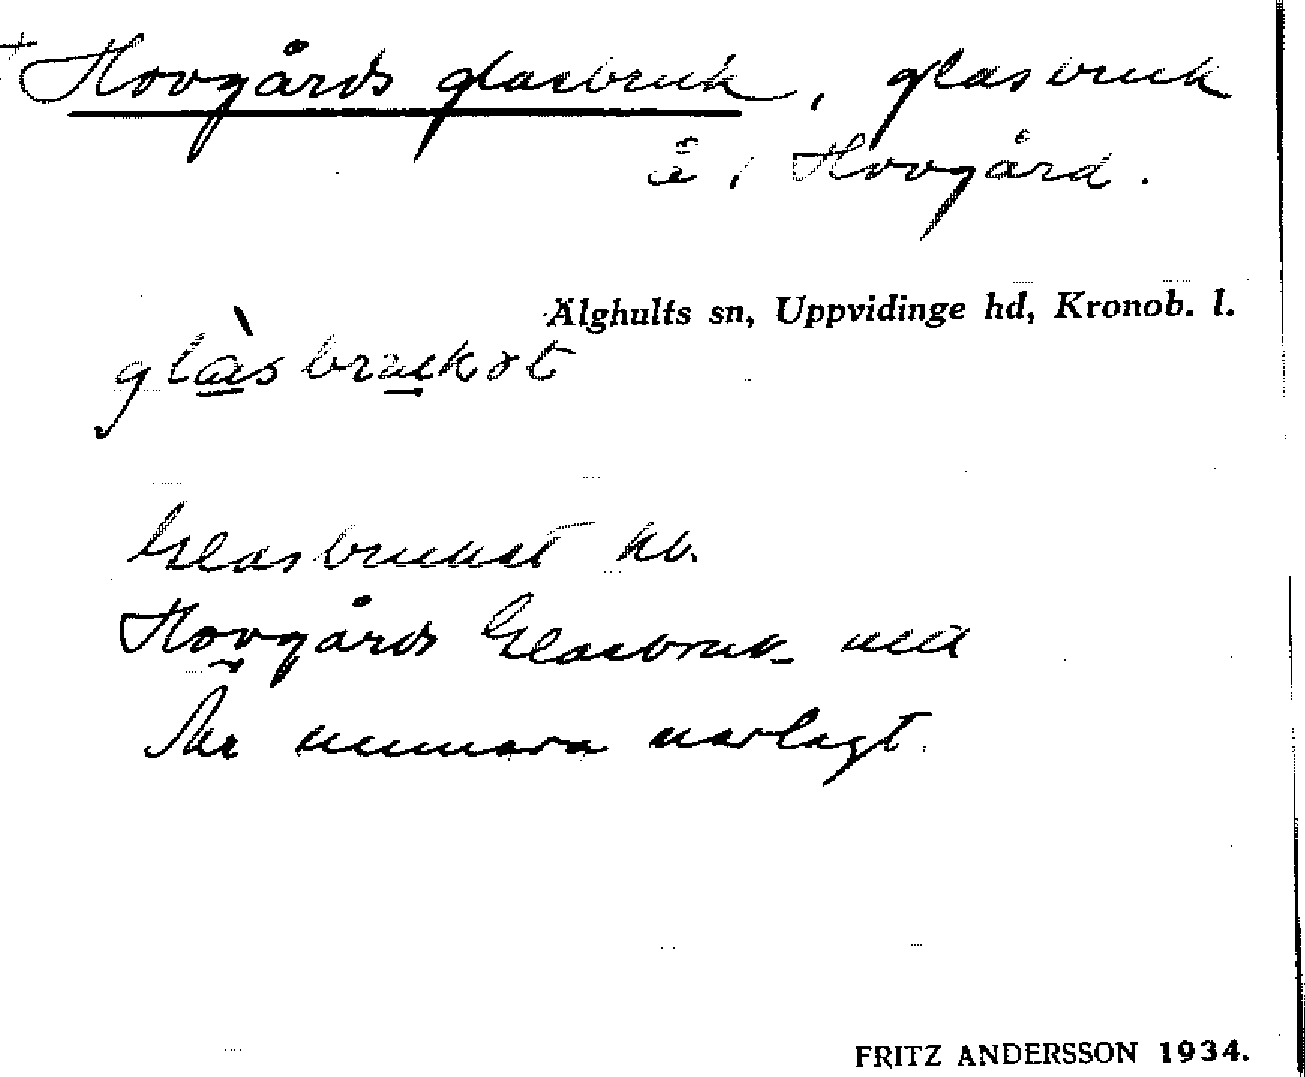 + Hovgårds glasbruk, glasbruk
å 1 Hovgård.
Älghults sn, Uppvidinge hd, Kronob. l.
glàsbrukət
Glasbruket kb.
Hovgårds Glasbruk
Är numera nerlagt.
FRITZ ANDERSSON 1934.